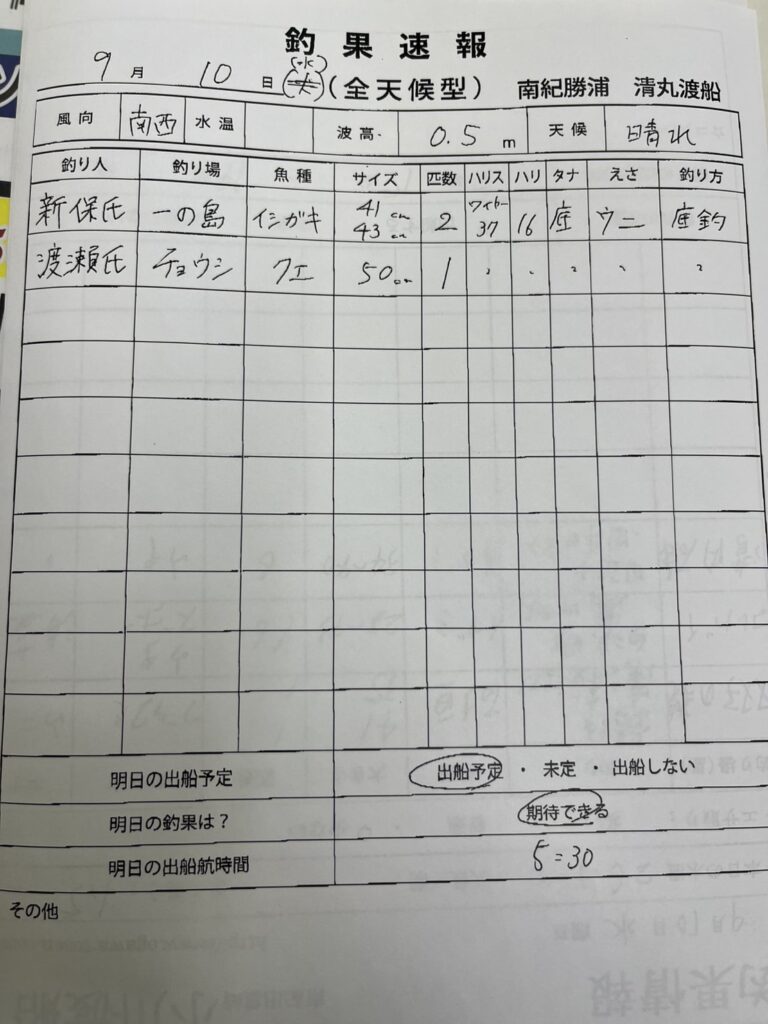 釣果速報
(水)
9月 10日 (全天候型) 南紀勝浦 清丸渡船
風向 南西 水温 波高 0.5 m 天候 晴れ
釣り人 釣り場 魚種 サイズ 匹数 ハリス ハリ タナ えさ 釣り方
新保氏 一の島 イシガキ 41cm 43cm 2 ワイヤー 37 16 底 ウニ 底釣
渡瀬氏 チョウシ クエ 50cm 1 〃 〃 〃 〃 〃
明日の出船予定 出船予定 ・ 未定 ・ 出船しない
明日の釣果は? 期待できる
明日の出船航時間 5:30
その他